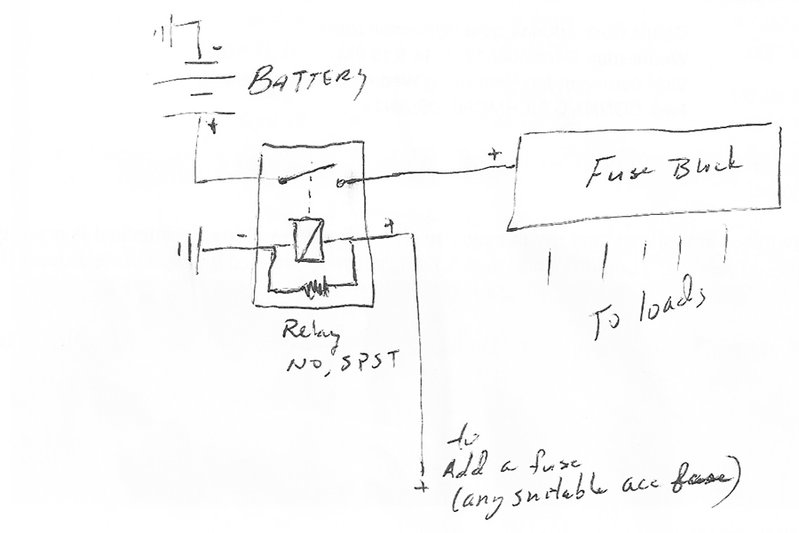 BATTERY
Fuse Block
To loads
Relay
NO, SPST
to
Add a fuse
(any suitable acc fuse)